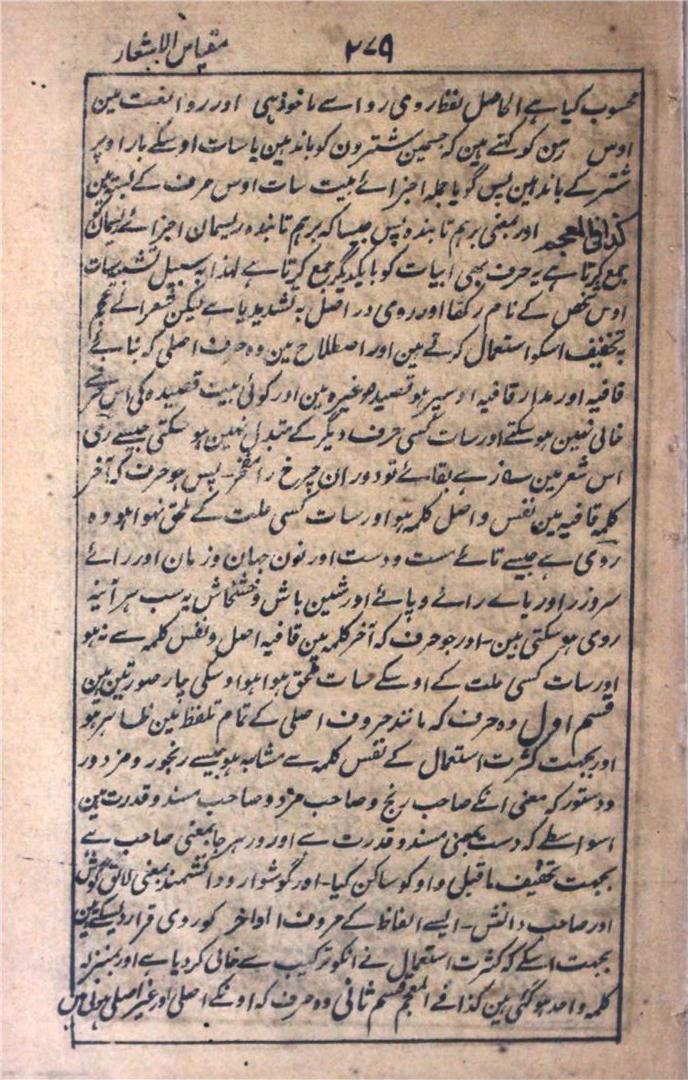 مقیاس الاشعار
۲۷۹
محسوب کیا ہے الحاصل لفظ روی روا سے ماخوذ ہی اور روا لغت مین
اوس رسن کو کہتے ہین کہ جسمین شترون کو باندہین یا سات اوسکے بار اوپر
شتر کے باندہین پس گویا جملہ اجزائے بیت سات اوس حرف کے بستہ ہین
کذا فی المعجم اور بمعنی برہم تابندہ پس جیسا کہ برہم تابندہ ریسمان اجزائے ریسمان کو
جمع کرتا ہے یہ حرف بھی ابیات کو بایکدیگر جمع کرتا ہے لہذا بہ سبیل تشبیہ سات
اوس شخص کے نام رکھا اور روی در اصل بہ تشدید یا ہے لیکن شعرائے عجم
بہ تخفیف اسکو استعمال کرتے ہین اور اصطلاح مین وہ حرف اصلی کہ بنائے
قافیہ اور مدار قافیہ اوسپر ہو قصیدہ وغیرہ مین اور کوئی بیت قصیدہ کی اس حرف سے
خالی نہین ہو سکتے اور سات کسی حرف دیگر کے متبدل نہین ہو سکتی جیسے رای
اس شعر مین ؎ زہے بقائے تو دوران چرخ را مفخر۔ پس ہو حرف کہ آخر
کلمہ قافیہ مین نفس و اصل کلمہ ہو اور سات کسی علت کے ملحق نہوا ہو وہ
روی ہے جیسے تائے مست و دست اور نون جہان و زمان اور رائے
سر و زر اور یاے رائے و پائے اور شین باش و خشخاش یہ سب ہر آئینہ
روی ہو سکتی ہین۔ اور جو حرف کہ آخر کلمہ مین قافیہ اصل و نفس کلمہ سے نہو
اور سات کسی علت کے اوسکے سات ملحق ہوا ہو اوسکی چار صورتین ہین
قسم اول وہ حرف کہ مانند حروف اصلی کے تمام تلفظ مین ظاہر ہو
اور بجہت کثرت استعمال کے نفس کلمہ سے مشابہ ہو جیسے رنجور و مزدور
و دستور کہ معنی انکے صاحب رنج و صاحب مزد و صاحب مسند و قدرت ہین
اسواسطے کہ دست بمعنی مسند و قدرت ہے اور ور ہر جا بمعنی صاحب ہے
بجہت تخفیف ماقبلی واو کو ساکن کیا۔ اور گوشوار و دانشمند بمعنی لائق گوش
اور صاحب دانش۔ ایسے الفاظ کے حروف اواخر کو روی قرار دیسکتے ہین
بجہت اسکے کہ کثرت استعمال نے انکو ترکیب سے خالی کر دیا ہے اور بمنزلہ
کلمہ واحد ہو گئی ہین کذا فے المعجم قسم ثانی وہ حرف کہ اونکے اصلی اور غیر اصلی ہونی مین